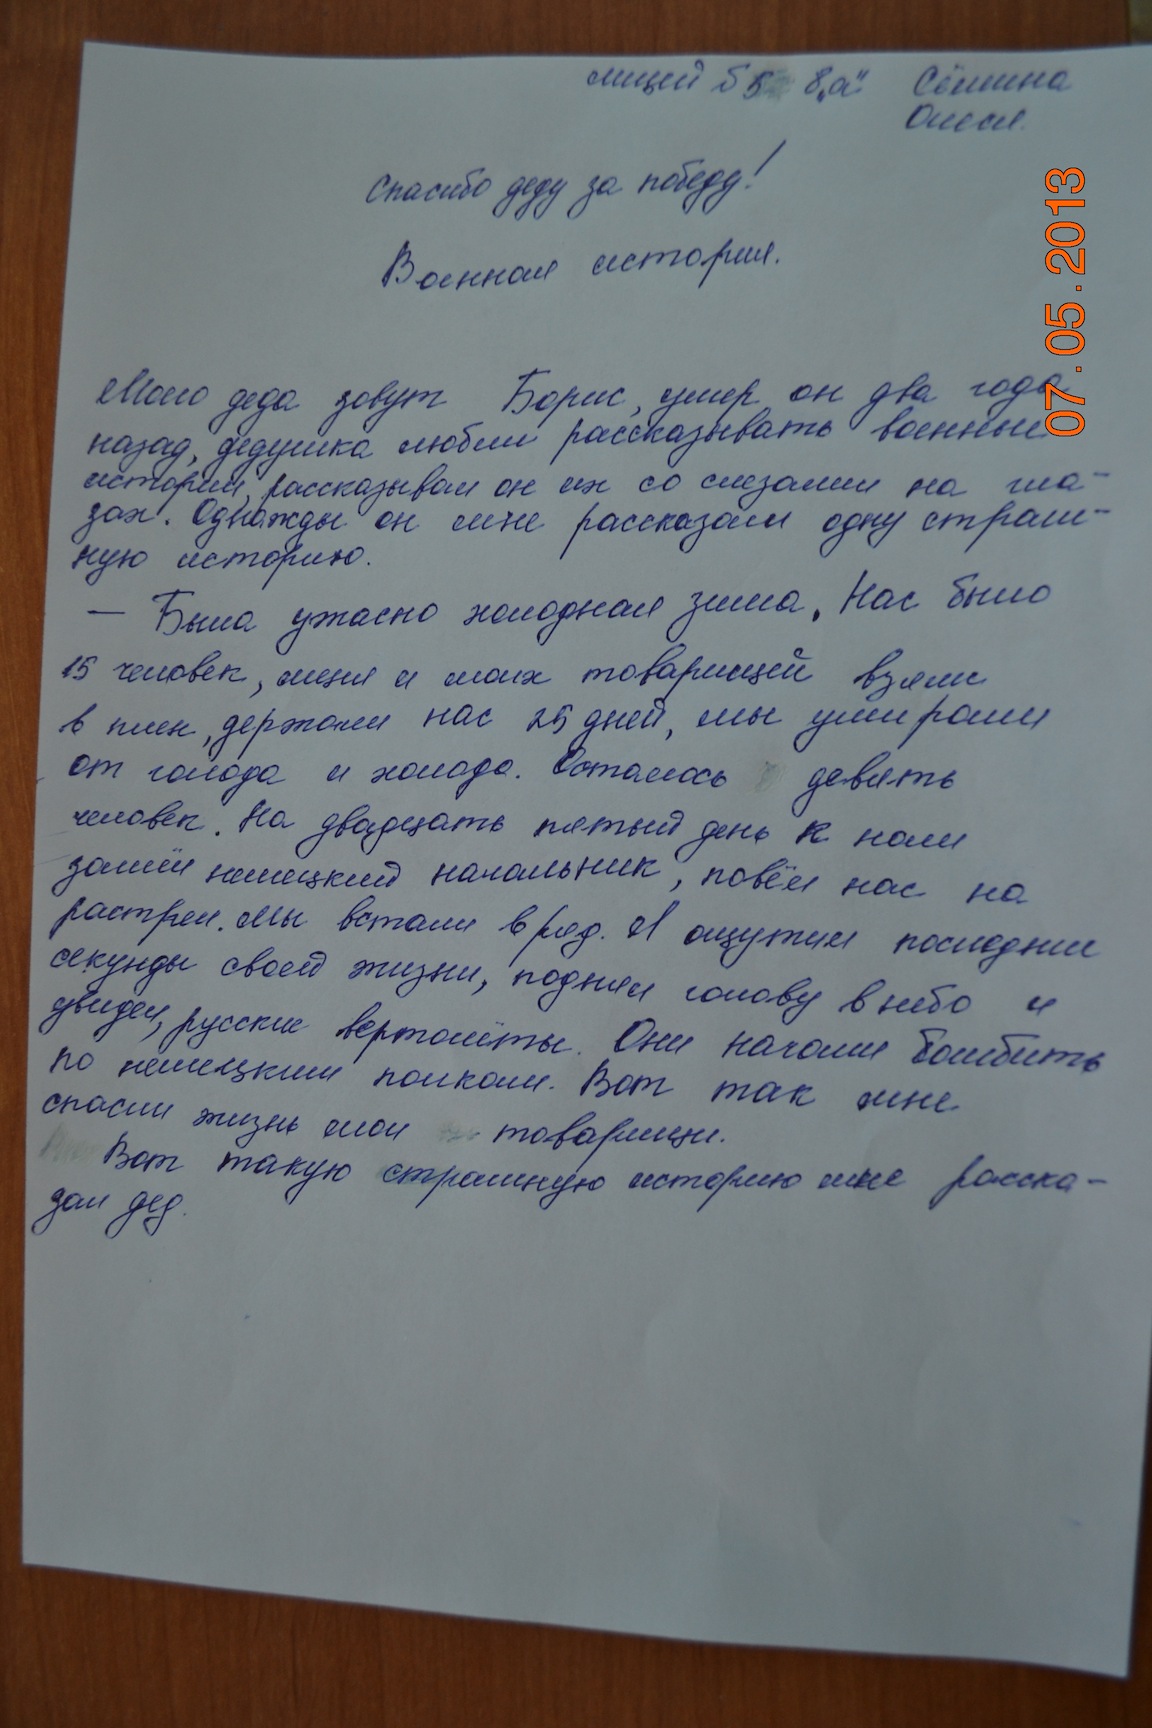 лицей 8 „а" Сёмина
Олеся.
Спасибо деду за победу!
Военная история.
07.05.2013
Моего деда зовут Борис, умер он два года
назад, дедушка любил рассказывать военные
истории, рассказывал он их со слезами на гла-
зах. Однажды он мне рассказал одну страш-
ную историю.
— Была ужасно холодная зима. Нас было
15 человек, меня и моих товарищей взяли
в плен, держали нас 25 дней, мы умирали
от голода и холода. Осталось девять
человек. На двадцать пятый день к нам
зашёл немецкий начальник, повёл нас на
растрел. Мы встали в ряд. Я ощутил последние
секунды своей жизни, поднял голову в небо и
увидел, русские вертолёты. Они начали бомбить
по немецким полкам. Вот так мне
спасли жизнь мои товарищи.
Вот такую страшную историю мне расска-
зал дед.